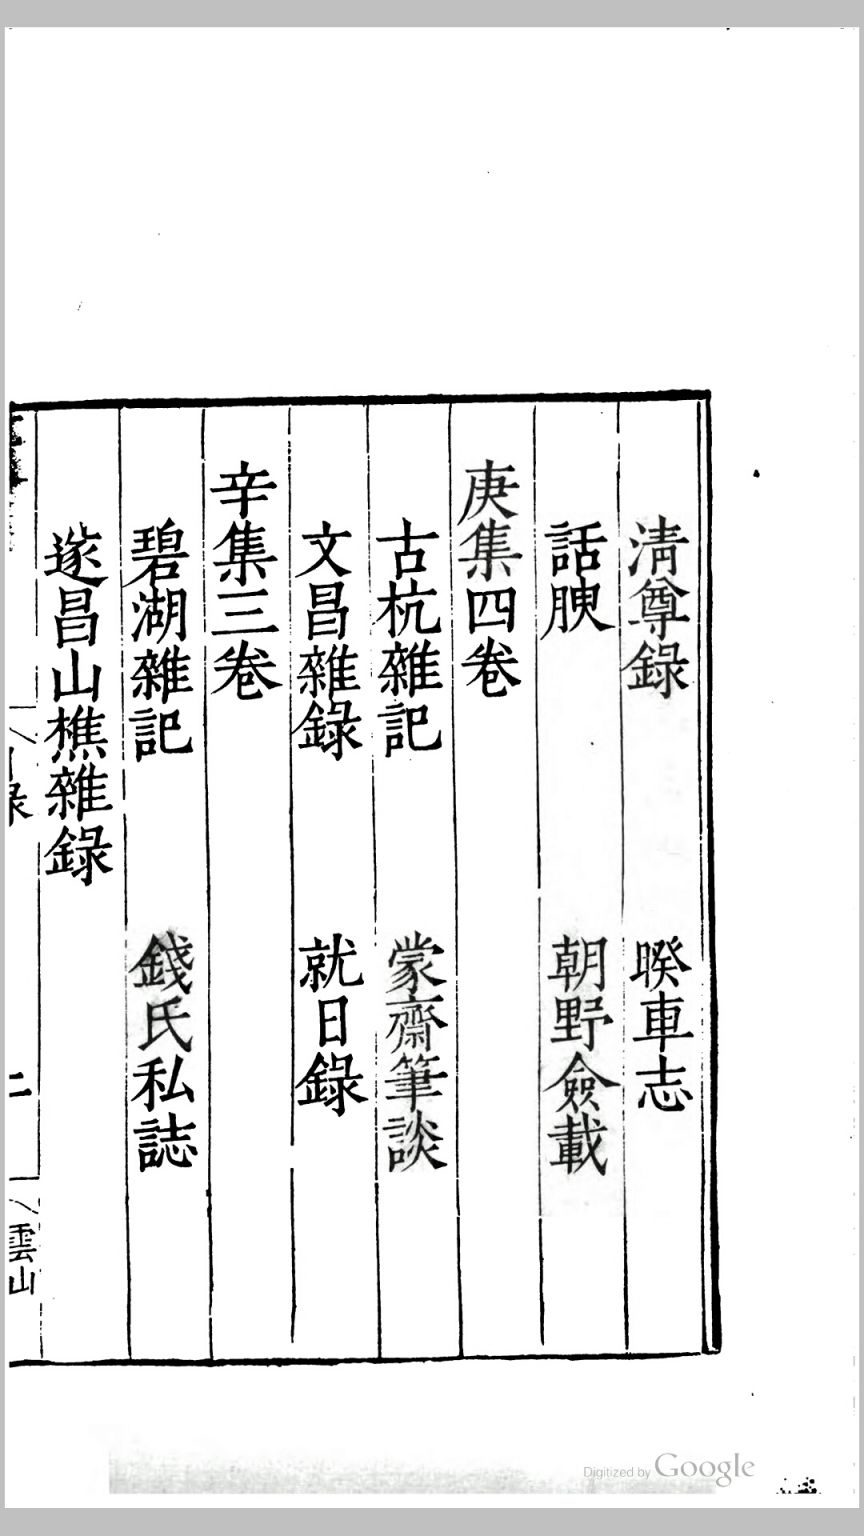 清尊錄　睽車志
話腴　朝野僉載
庚集四卷
古杭雜記　蒙齋筆談
文昌雜錄　就日錄
辛集三卷
碧湖雜記　錢氏私誌
遂昌山樵雜錄
目錄　二　雲山
Digitized by Google